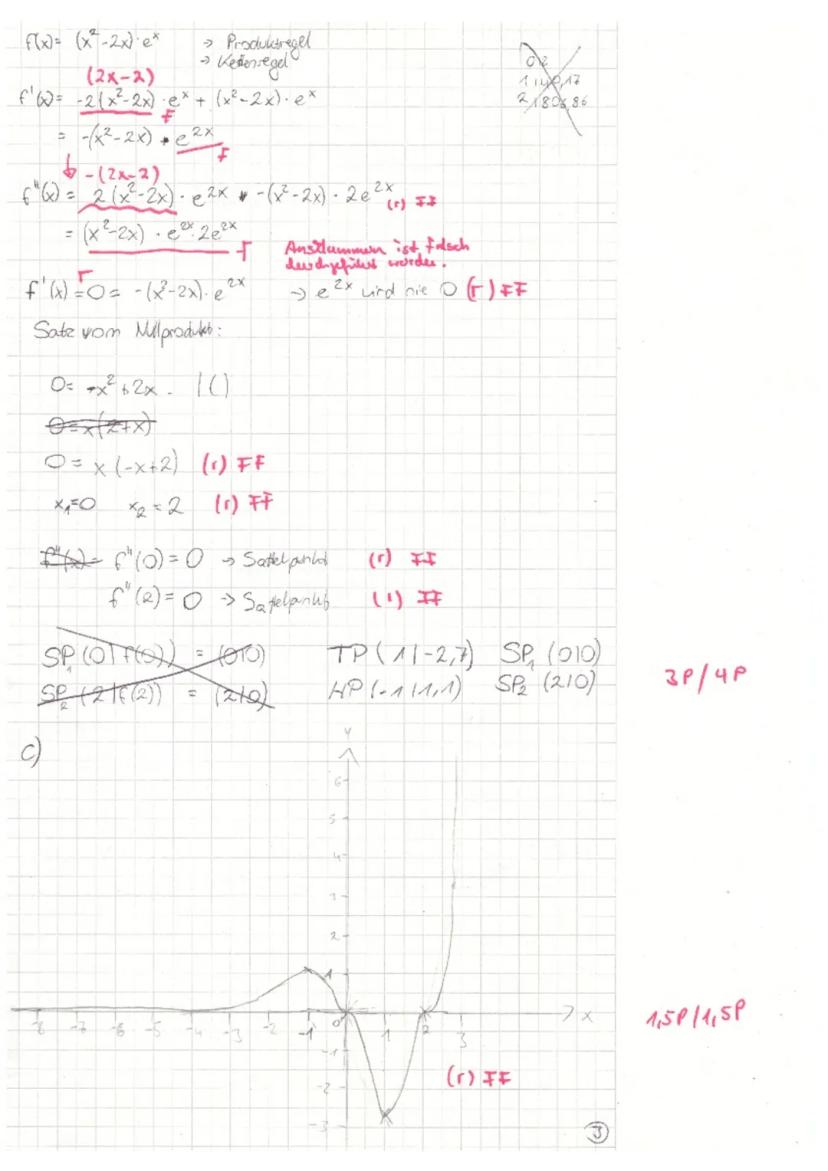 f(x) = (x²-2x)·eˣ → Produktregel
→ Kettenregel
0 2
1 140,17
2 1806,86
(2x-2)
f'(x) = -2(x²-2x)·eˣ + (x²-2x)·eˣ
F
= -(x²-2x) · e²ˣ
F
-(2x-2)
f''(x) = 2(x²-2x)·e²ˣ · -(x²-2x)·2e²ˣ (r) FF
= (x²-2x)·e²ˣ·2e²ˣ F
Ausklammern ist falsch
durchgeführt worden.
r
f'(x) = 0 = -(x²-2x)·e²ˣ → e²ˣ wird nie 0 (r) FF
Satz vom Nullprodukt:
0 = -x²+2x | ()
0=x(2+x)
0 = x(-x+2) (r) FF
x₁=0 x₂=2 (r) FF
f''(x)= f''(0) = 0 → Sattelpunkt (r) FF
f''(2) = 0 → Sattelpunkt (r) FF
SP₁(0|f(0)) = (0|0) TP(1|-2,7) SP₁(0|0)
SP₂(2|f(2)) = (2|0) HP(-1|1,1) SP₂(2|0)
3P/4P
c)
y
6
5
4
3
2
1
-8 -7 -6 -5 -4 -3 -2 -1 0 1 2 3 x
-1
-2
-3
1,5P/1,5P
(r) FF
3